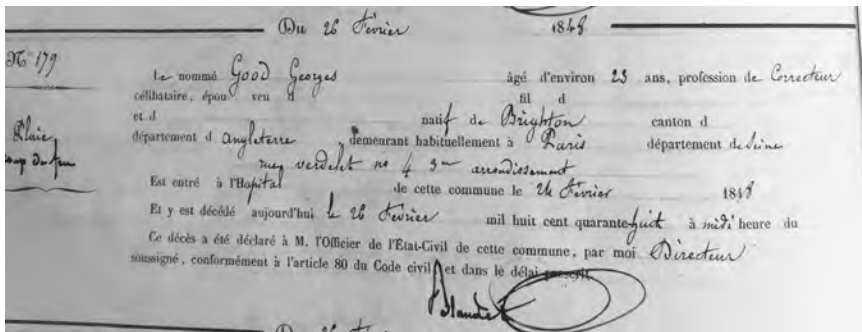 Du 26 Février 1848
N° 179
Le nommé Good Georges âgé d'environ 23 ans, profession de Correcteur
célibataire, épou veu d fil d
et d natif de Brighton canton d
Plaie
département d Angleterre, demeurant habituellement à Paris département de Seine
coup de feu
rue verdelet no 4 3me arrondissement
Est entré à l'Hopital de cette commune le 24 Février 1848
Et y est décédé aujourd'hui le 26 Février mil huit cent quarante-huit à midi heure du
Ce décès a été déclaré à M. l'Officier de l'État-Civil de cette commune, par moi Directeur
soussigné, conformément à l'article 80 du Code civil et dans le délai prescrit.